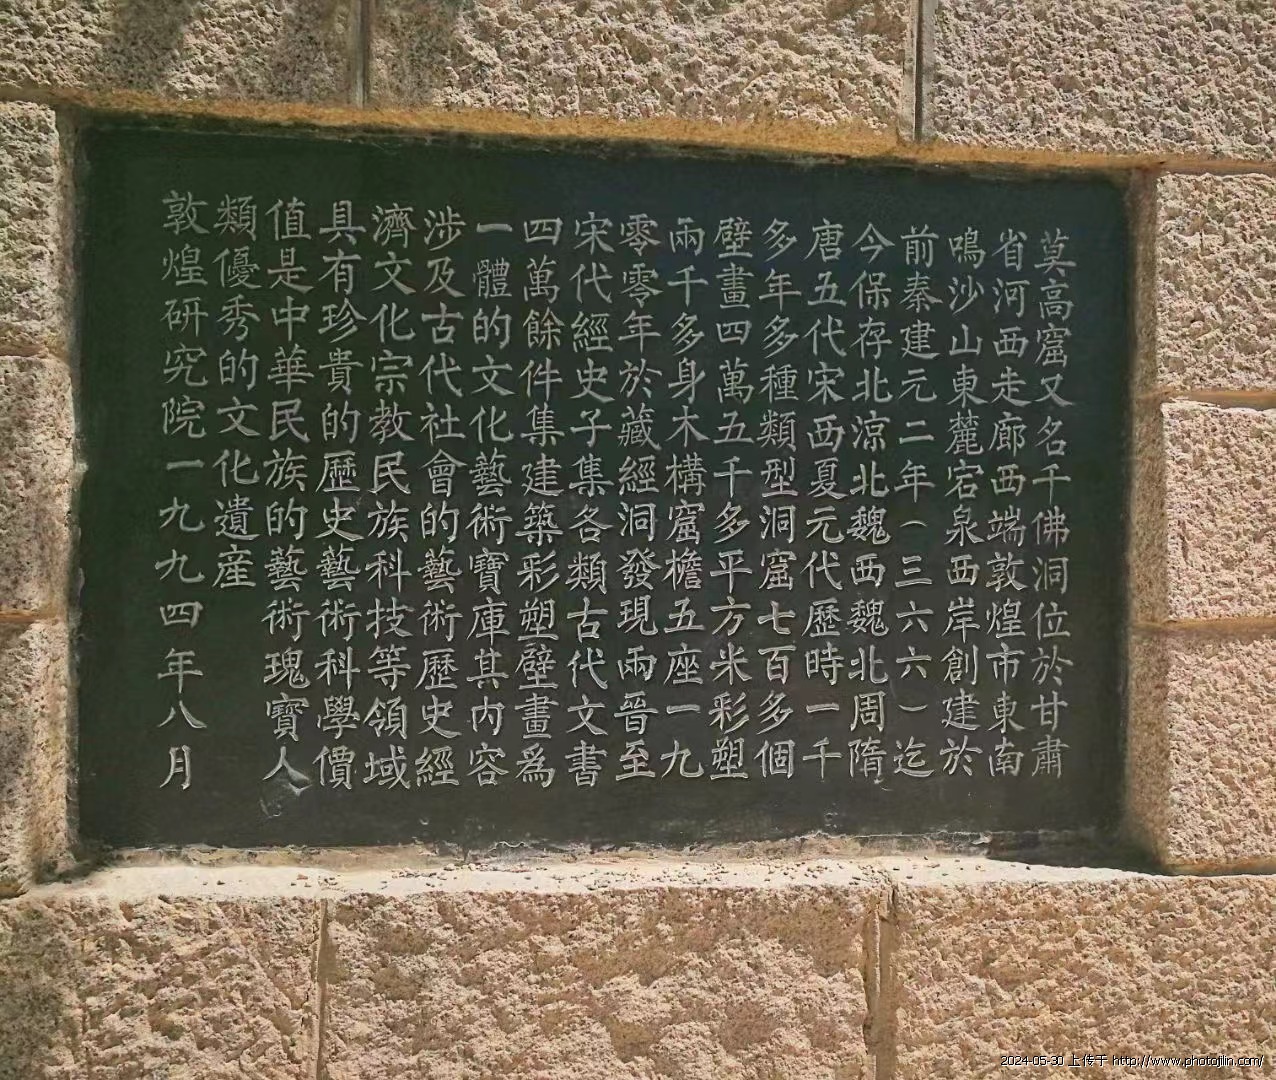 莫高窟又名千佛洞位於甘肅
省河西走廊西端敦煌市東南
鳴沙山東麓宕泉西岸創建於
前秦建元二年(三六六)迄
今保存北涼北魏西魏北周隋
唐五代宋西夏元代歷時一千
多年多種類型洞窟七百多個
壁畫四萬五千多平方米彩塑
兩千多身木構窟檐五座一九
零零年於藏經洞發現兩晉至
宋代經史子集各類古代文書
四萬餘件集建築彩塑壁畫為
一體的文化藝術寶庫其内容
涉及古代社會的藝術歷史經
濟文化宗教民族科技等領域
具有珍貴的歷史藝術科學價
值是中華民族的藝術瑰寶人
類優秀的文化遺産
敦煌研究院一九九四年八月
2024-05-30 上传于 http://www.photojilin.com/